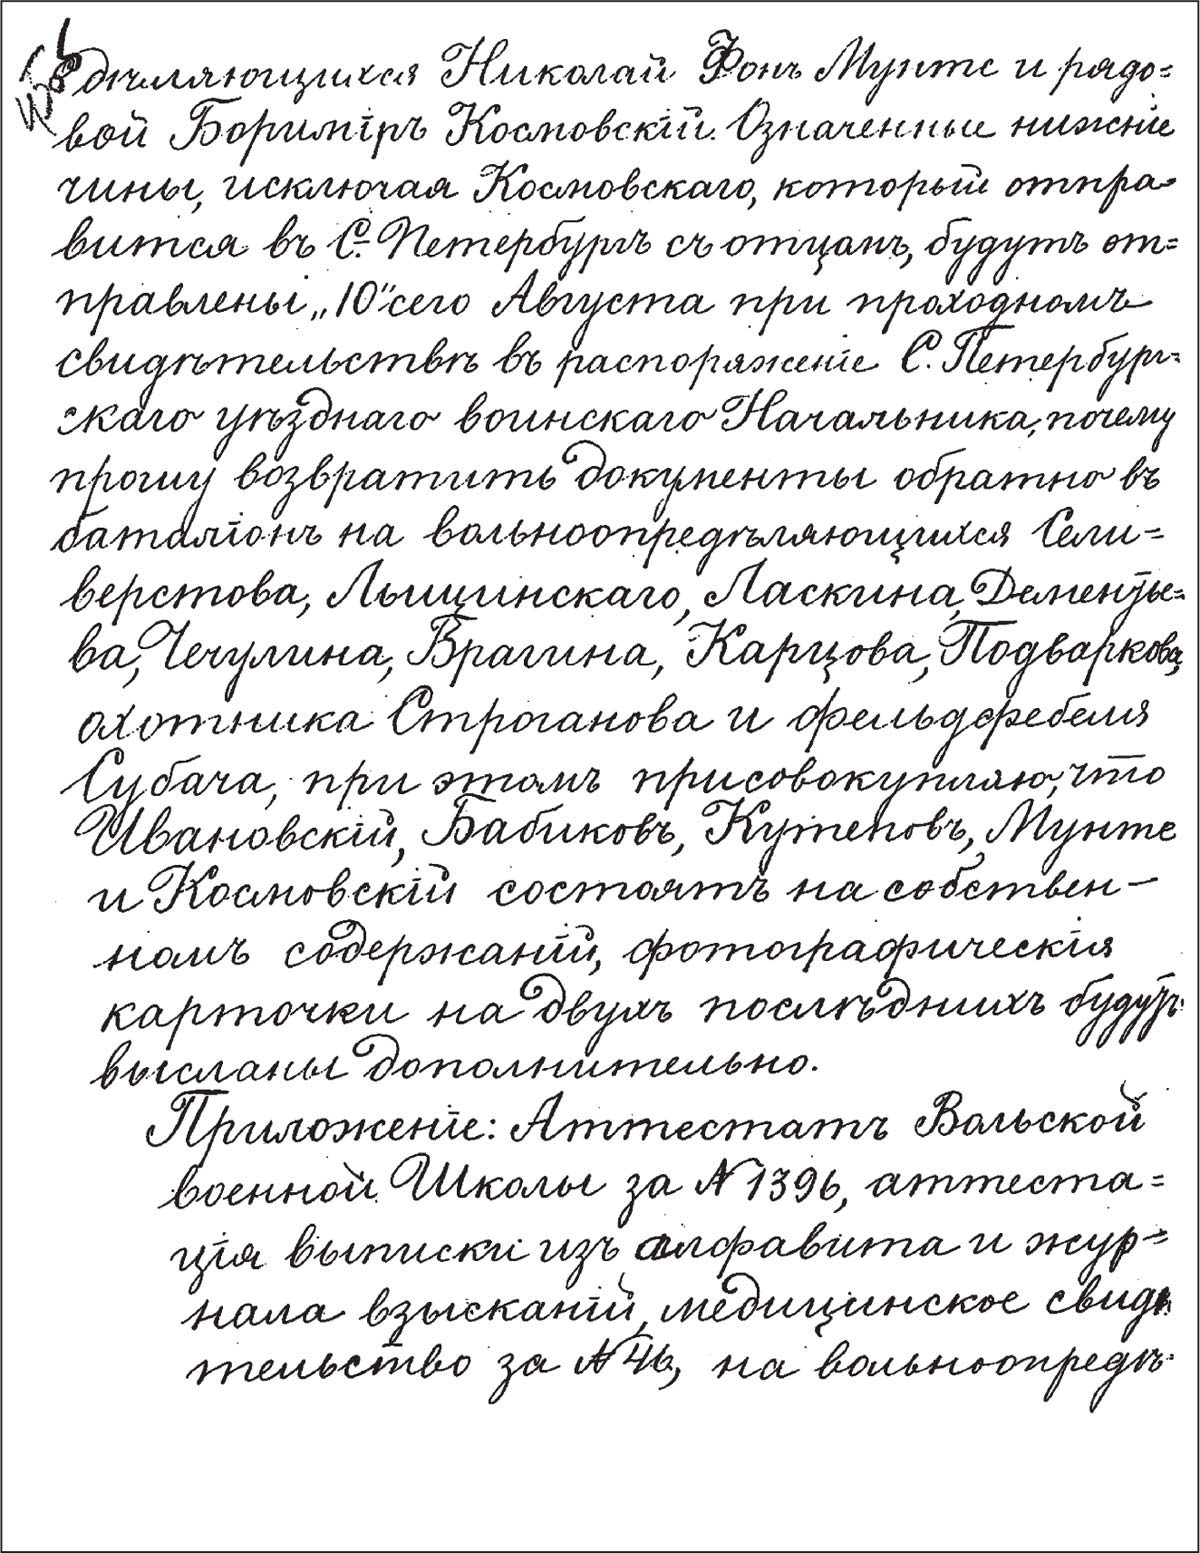 дѣляющихся Николай Фонъ Мунте и рядо=
вой Боримiръ Космовскiй. Означенные нижнiе
чины, исключая Космовскаго, который отпра=
вится въ С. Петербургъ съ отцамъ, будутъ от=
правлены „10" сего Августа при проходномъ
свидѣтельствѣ въ распоряженiе С. Петербург=
скаго уѣзднаго воинскаго Начальника, почему
прошу возвратить документы обратно въ
баталiонъ на вольноопредѣляющихся Сели=
верстова, Лыщинскаго, Ласкина, Дементье=
ва, Чечулина, Врагина, Карцова, Подваркова,
охотника Строганова и фельдфебеля
Субача, при этомъ присовокупляю, что
Ивановскiй, Бабиковъ, Кутеповъ, Мунте
и Космовскiй состоятъ на собствен—
номъ содержанiй, фотографическiя
карточки на двухъ послѣднихъ будутъ
высланы дополнительно.
Приложенiе: Аттестатъ Вольской
военной Школы за №1396, аттеста=
цiя выписки изъ алфавита и жур=
нала взысканiй, медицинское свидѣ
тельство за №46, на вольноопредѣ-